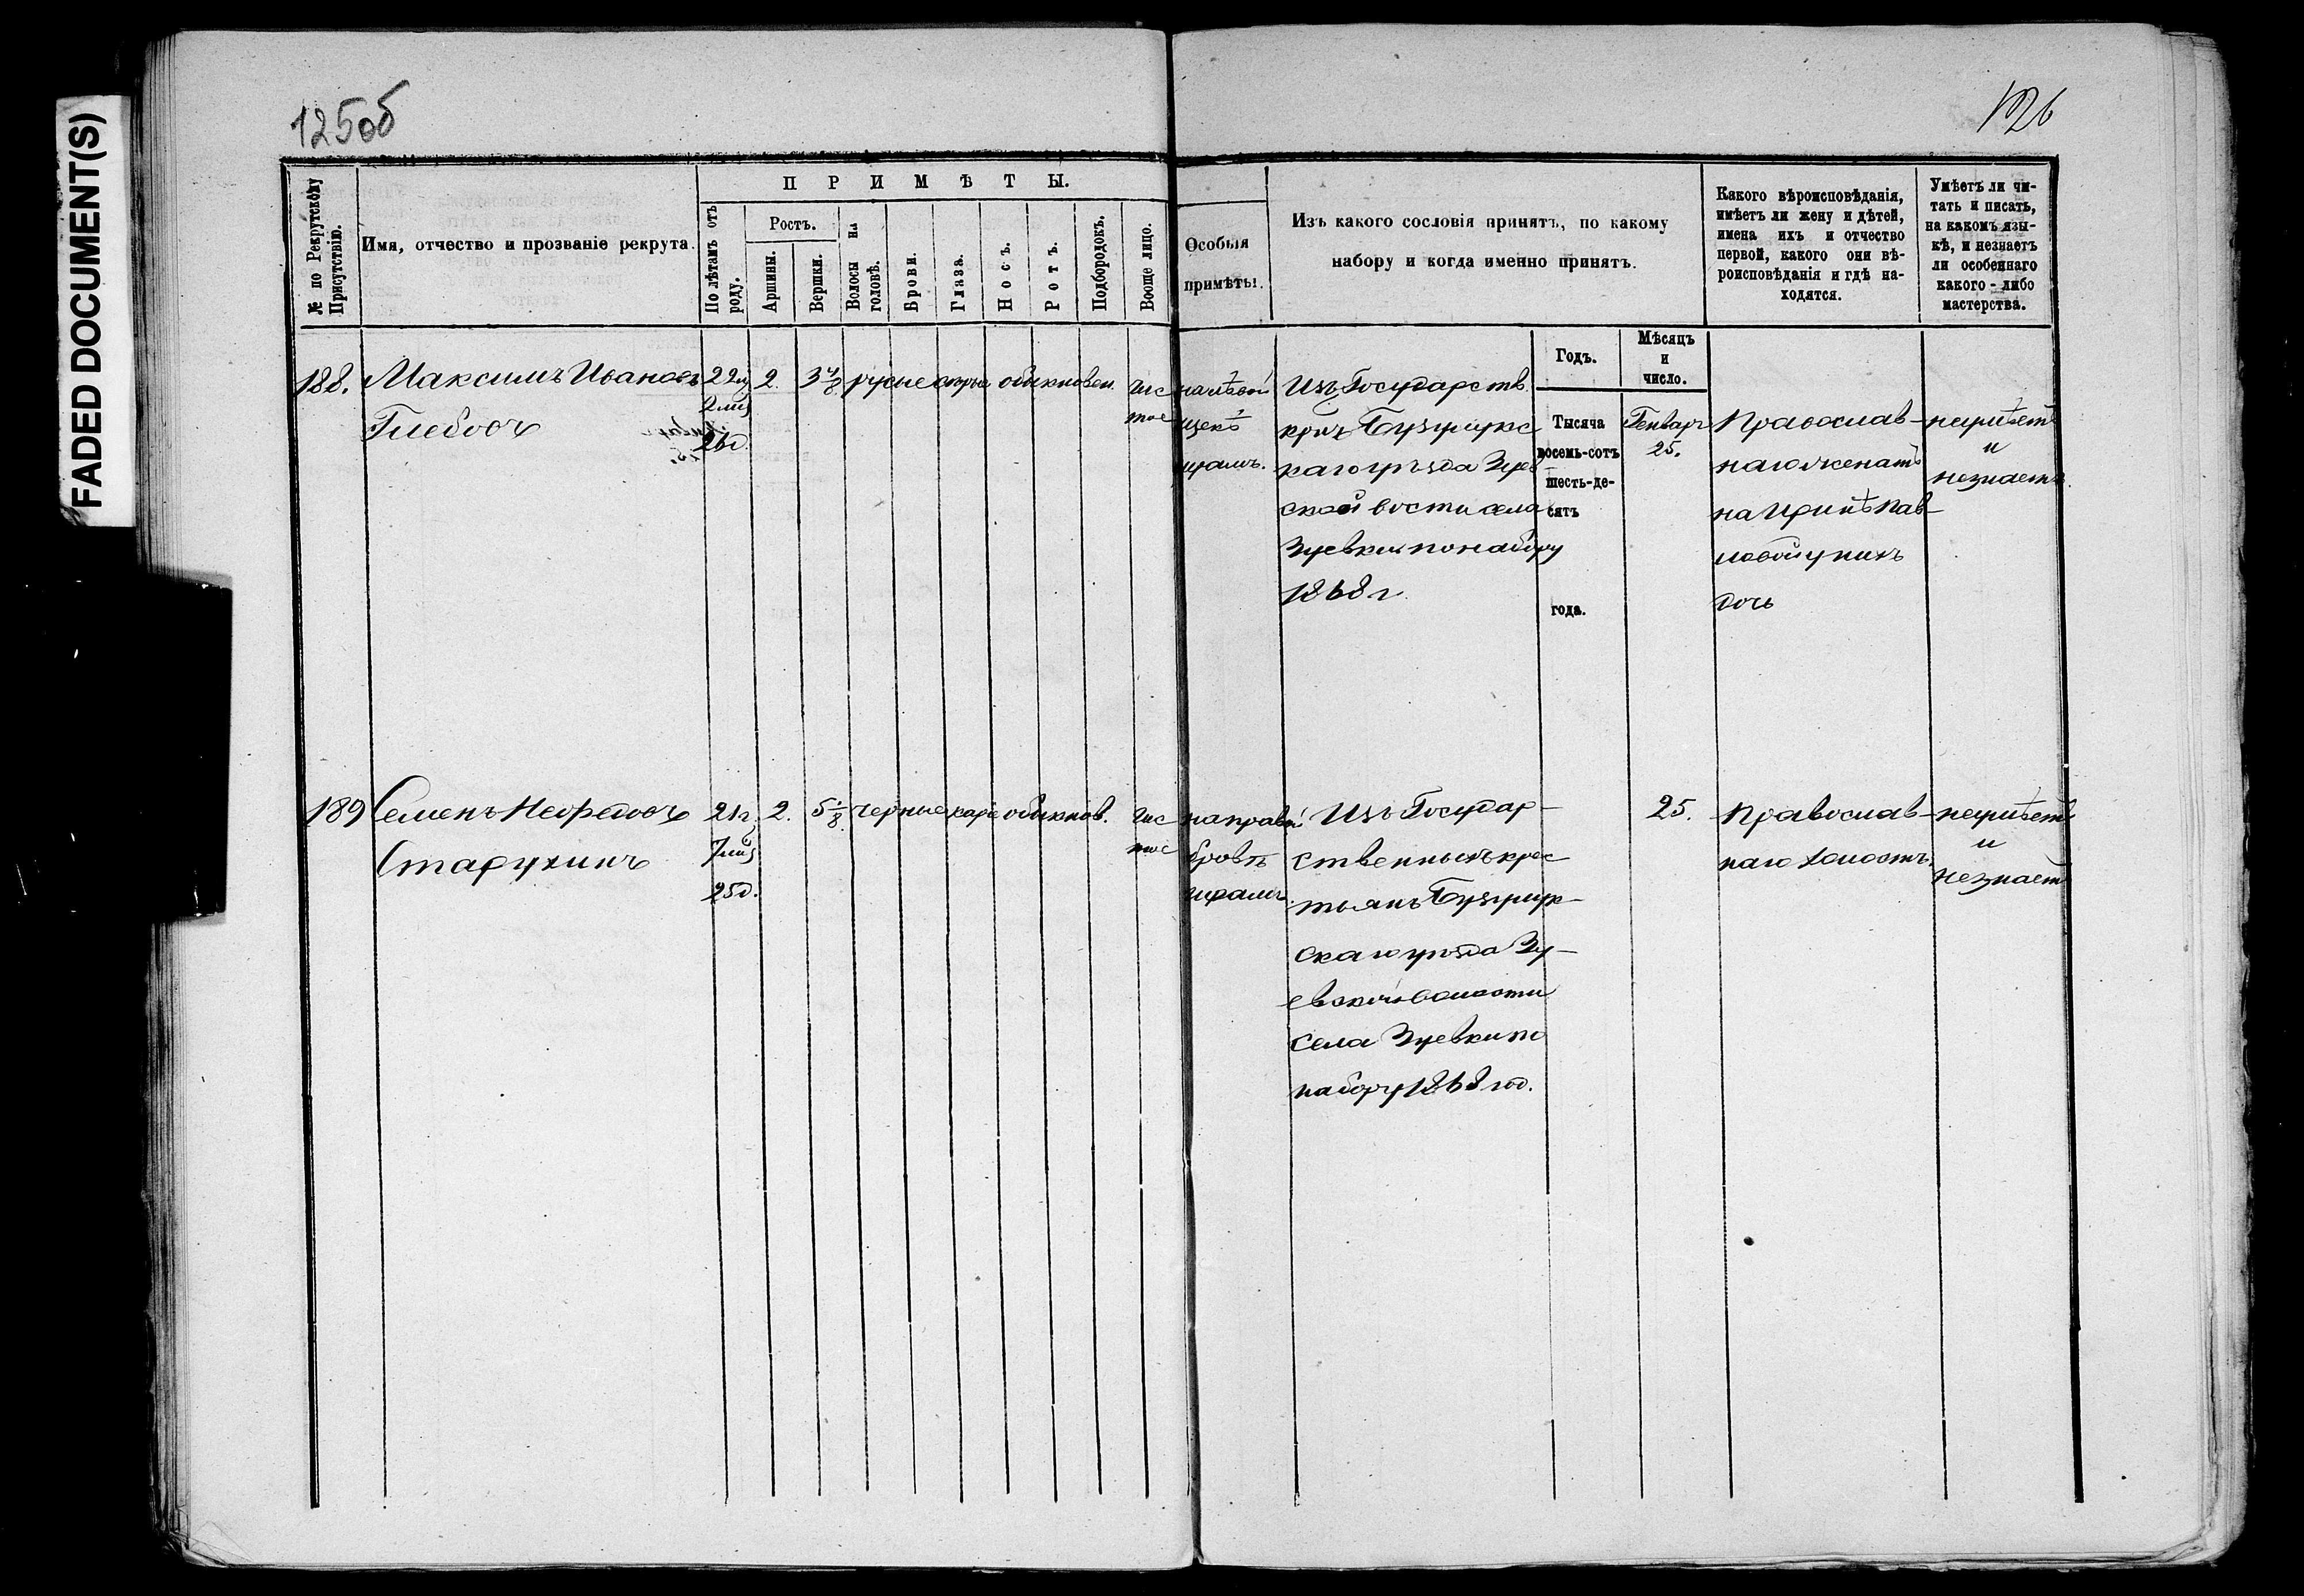 FADED DOCUMENT(S)
125об
126
№ по Рекрутскому Присутствію.
Имя, отчество и прозваніе рекрута.
ПРИМѢТЫ.
По лѣтамъ отъ роду.
Ростъ.
Аршины.
Вершки.
Волосы на головѣ.
Брови.
Глаза.
Носъ.
Ротъ.
Подбородокъ.
Вооще лицо.
Особыя
примѣты.
Изъ какого сословія принятъ, по какому
набору и когда именно принятъ.
Какого вѣроисповѣданія,
имѣетъ ли жену и дѣтей,
имена ихъ и отчество
первой, какого они вѣ-
роисповѣданія и гдѣ на-
ходятся.
Умѣетъ ли чи-
тать и писать,
на какомъ язы-
кѣ, и незнаетъ
ли особеннаго
какого-либо
мастерства.
Годъ.
Мѣсяцъ
и
число.
Тысяча
восемь-сотъ
шесть-де-
сятъ
года.
188.
Максимъ Ивановъ
Глебовъ
22
2 мц
26д.
2.
3 4/8
русые
серые
обыкновен.
чис
тое
на лѣвой
щекѣ
шрамъ.
Изъ Государств.
крич Бузулукс
каго уѣзда Зуев
ской вости села
Зуевки по набору
1868 г.
Генваръ
25.
Православ-
наго женатъ
на Иринѣ Пав-
ловой у нихъ
дочь
неумѣетъ
и
незнаетъ.
189
Семенъ Нефедовъ
Старухинъ
21г.
7мц
25д.
2.
5 1/8
черные
каріе
обыкнов.
чис
тое
на правой
бровѣ
шрамъ.
Изъ Государ-
ственныхъ крес
тьянъ Бузулук-
скаго уѣзда Зу-
евской волости
села Зуевки по
набору 1868 год.
25.
Православ-
наго холостъ.
неумѣетъ
и
незнаетъ